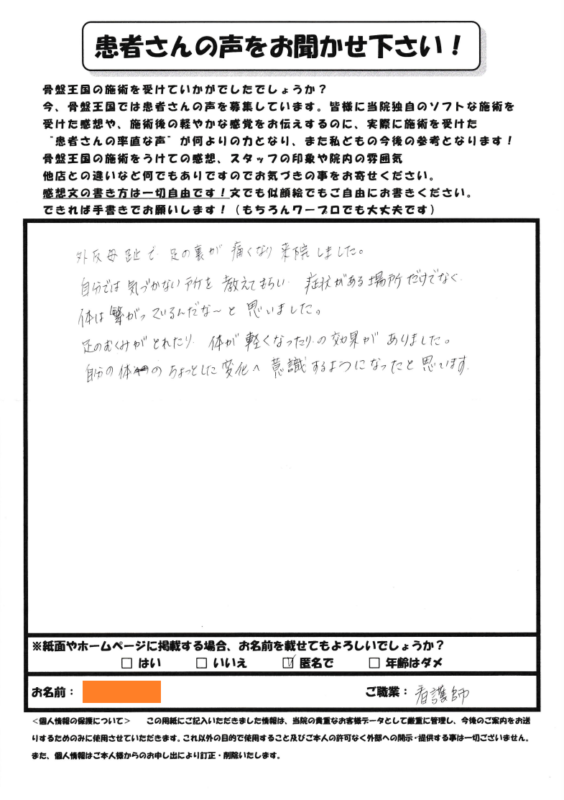 患者さんの声をお聞かせ下さい！
骨盤王国の施術を受けていかがでしたでしょうか？
今、骨盤王国では患者さんの声を募集しています。皆様に当院独自のソフトな施術を
受けた感想や、施術後の軽やかな感覚をお伝えするのに、実際に施術を受けた
“患者さんの率直な声”が何よりの力となり、また私どもの今後の参考となります！
骨盤王国の施術をうけての感想、スタッフの印象や院内の雰囲気
他店との違いなど何でもありですのでお気づきの事をお寄せください。
感想文の書き方は一切自由です！文でも似顔絵でもご自由にお書きください。
できれば手書きでお願いします！（もちろんワープロでも大丈夫です）
外反母趾で 足の裏が 痛くなり 来院しました。
自分では 気づかない所を 教えてもらい 症状がある場所だけでなく
体は繋がっているんだな〜と 思いました。
足のむくみがとれたり 体が軽くなったりの効果が ありました。
自分の体の ちょっとした変化へ 意識するようになったと思います。
※紙面やホームページに掲載する場合、お名前を載せてもよろしいでしょうか？
□ はい □ いいえ ☑ 匿名で □ 年齢はダメ
お名前： ご職業：看護師
＜個人情報の保護について＞ この用紙にご記入いただきました情報は、当院の貴重なお客様データとして厳重に管理し、今後のご案内をお送
りするためのみに使用させていただきます。これ以外の目的で使用すること及びご本人の許可なく外部への開示・提供する事は一切ございません。
また、個人情報はご本人様からのお申し出により訂正・削除いたします。